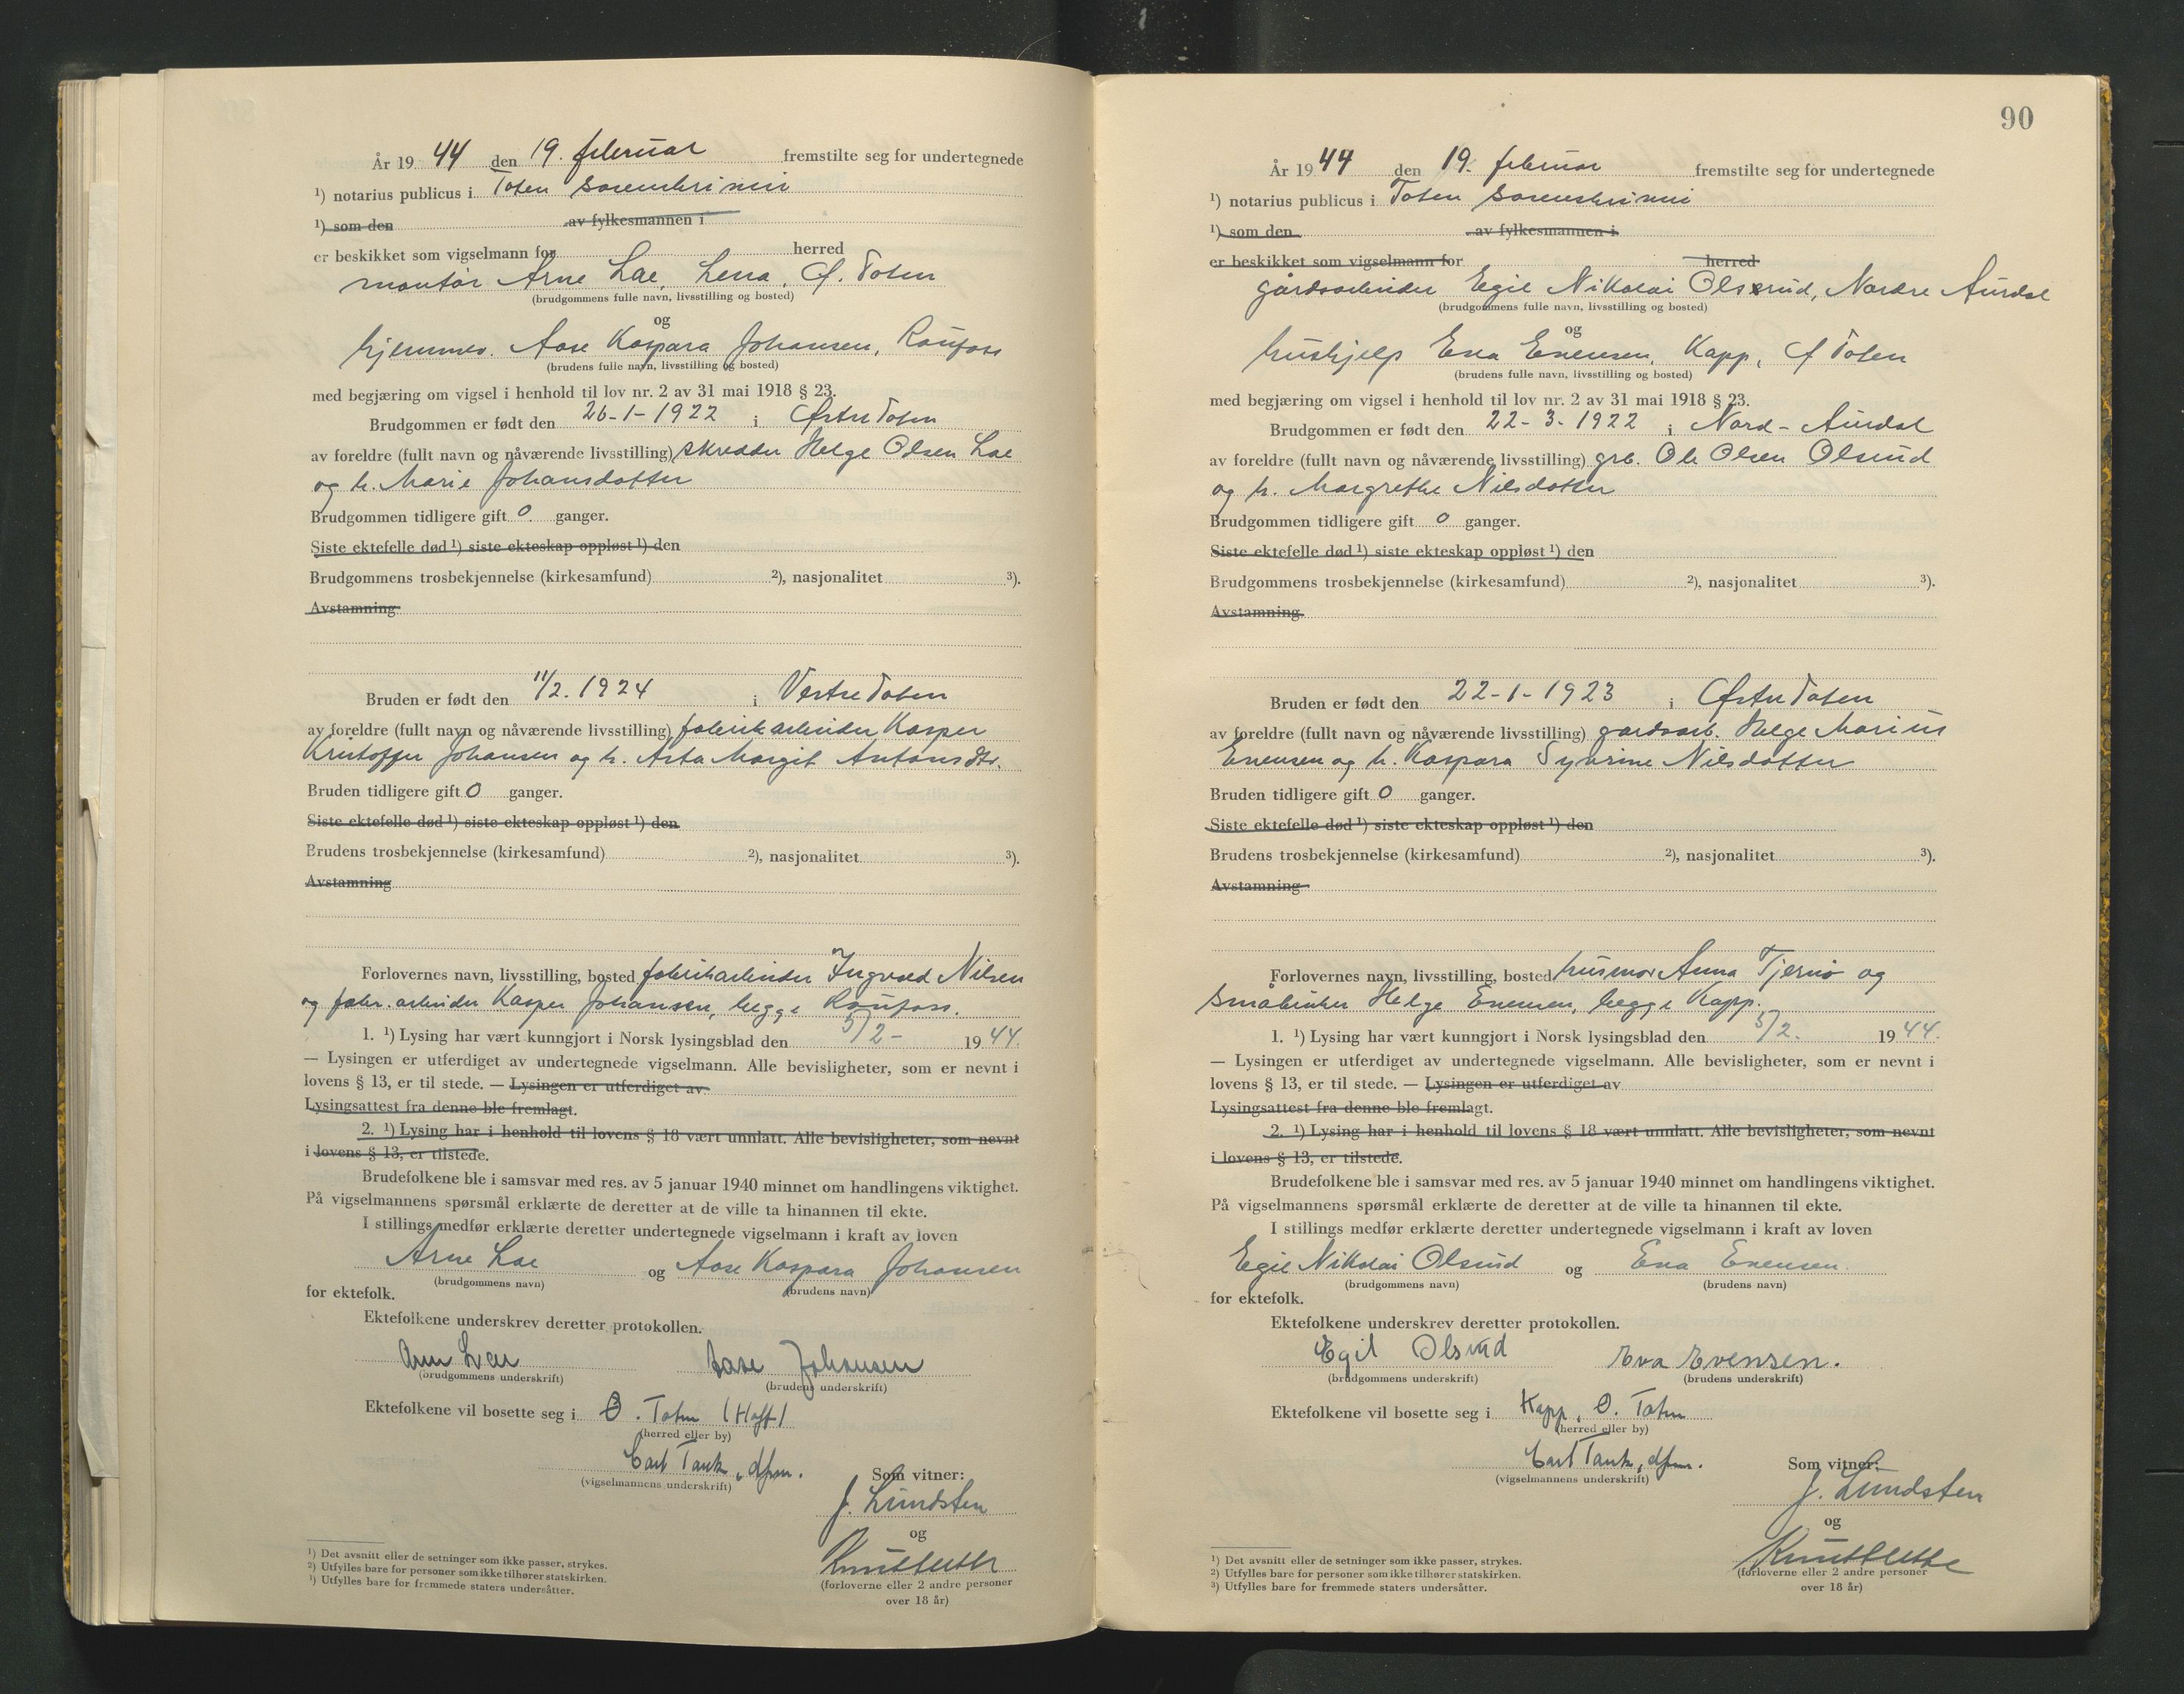 År 19 44 den 19. februar fremstilte seg for undertegnede
¹) notarius publicus i Toten sorenskriveri
¹) som den av fylkesmannen i
er beskikket som vigselmann for herred
montør Arne Lae, Lena, Ø. Toten
(brudgommens fulle navn, livsstilling og bosted)
og
hjemmev. Aase Kaspara Johansen, Raufoss
(brudens fulle navn, livsstilling og bosted)
med begjæring om vigsel i henhold til lov nr. 2 av 31 mai 1918 § 23.
Brudgommen er født den 26-1-1922 i Østre Toten
av foreldre (fullt navn og nåværende livsstilling) skredder Helge Olsen Lae
og h. Marie Johansdatter
Brudgommen tidligere gift 0 ganger.
Siste ektefelle død ¹) siste ekteskap oppløst ¹) den
Brudgommens trosbekjennelse (kirkesamfund) ²), nasjonalitet ³).
Avstamning
Bruden er født den 11/2. 1924 i Vestre Toten
av foreldre (fullt navn og nåværende livsstilling) fabrikkarbeider Kasper
Kristoffer Johansen og h. Asta Margit Antonsdtr.
Bruden tidligere gift 0 ganger.
Siste ektefelle død ¹) siste ekteskap oppløst ¹) den
Brudens trosbekjennelse (kirkesamfund) ²), nasjonalitet ³).
Avstamning
Forlovernes navn, livsstilling, bosted fabrikkarbeider Ingvald Nilsen
og fabr. arbeider Kasper Johansen, begge Raufoss.
1. ¹) Lysing har vært kunngjort i Norsk lysingsblad den 5/2- 19 44.
— Lysingen er utferdiget av undertegnede vigselmann. Alle bevisligheter, som er nevnt i
lovens § 13, er til stede. — Lysingen er utferdiget av
Lysingsattest fra denne ble fremlagt.
2. ¹) Lysing har i henhold til lovens § 18 vært unnlatt. Alle bevisligheter, som nevnt
i lovens § 13, er tilstede.
Brudefolkene ble i samsvar med res. av 5 januar 1940 minnet om handlingens viktighet.
På vigselmannens spørsmål erklærte de deretter at de ville ta hinannen til ekte.
I stillings medfør erklærte deretter undertegnede vigselmann i kraft av loven
Arne Lae og Aase Kaspara Johansen
(brudgommens navn) (brudens navn)
for ektefolk.
Ektefolkene underskrev deretter protokollen.
Arne Lae Aase Johansen
(brudgommens underskrift) (brudens underskrift)
Ektefolkene vil bosette seg i Ø. Toten (Hoff)
(herred eller by)
Carl Tank, dfm.
(vigselmannens underskrift)
Som vitner:
J. Lundsten
og
(forloverne eller 2 andre personer
over 18 år)
¹) Det avsnitt eller de setninger som ikke passer, strykes.
²) Utfylles bare for personer som ikke tilhører statskirken.
³) Utfylles bare for fremmede staters undersåtter.
90
År 19 44 den 19. februar fremstilte seg for undertegnede
¹) notarius publicus i Toten sorenskriveri
¹) som den av fylkesmannen i
er beskikket som vigselmann for herred
gårdsarbeider Egil Nikolai Olsrud, Nordre Aurdal
(brudgommens fulle navn, livsstilling og bosted)
og
hushjelp Eva Evensen, Kapp, Ø Toten
(brudens fulle navn, livsstilling og bosted)
med begjæring om vigsel i henhold til lov nr. 2 av 31 mai 1918 § 23.
Brudgommen er født den 22-3-1922 i Nord-Aurdal
av foreldre (fullt navn og nåværende livsstilling) grb. Ole Olsen Olsrud
og h. Margrethe Nilsdatter
Brudgommen tidligere gift 0 ganger.
Siste ektefelle død ¹) siste ekteskap oppløst ¹) den
Brudgommens trosbekjennelse (kirkesamfund) ²), nasjonalitet ³).
Avstamning
Bruden er født den 22-1-1923 i Østre Toten
av foreldre (fullt navn og nåværende livsstilling) gardsarb. Helge Marius
Evensen og h. Kaspara Syverine Nilsdatter
Bruden tidligere gift 0 ganger.
Siste ektefelle død ¹) siste ekteskap oppløst ¹) den
Brudens trosbekjennelse (kirkesamfund) ²), nasjonalitet ³).
Avstamning
Forlovernes navn, livsstilling, bosted husmor Anna Tjernø og
småbruker Helge Evensen, begge Kapp.
1. ¹) Lysing har vært kunngjort i Norsk lysingsblad den 5/2. 19 44.
— Lysingen er utferdiget av undertegnede vigselmann. Alle bevisligheter, som er nevnt i
lovens § 13, er til stede. — Lysingen er utferdiget av
Lysingsattest fra denne ble fremlagt.
2. ¹) Lysing har i henhold til lovens § 18 vært unnlatt. Alle bevisligheter, som nevnt
i lovens § 13, er tilstede.
Brudefolkene ble i samsvar med res. av 5 januar 1940 minnet om handlingens viktighet.
På vigselmannens spørsmål erklærte de deretter at de ville ta hinannen til ekte.
I stillings medfør erklærte deretter undertegnede vigselmann i kraft av loven
Egil Nikolai Olsrud og Eva Evensen.
(brudgommens navn) (brudens navn)
for ektefolk.
Ektefolkene underskrev deretter protokollen.
Egil Olsrud Eva Evensen.
(brudgommens underskrift) (brudens underskrift)
Ektefolkene vil bosette seg i Kapp, Ø. Toten
(herred eller by)
Carl Tank, dfm.
(vigselmannens underskrift)
Som vitner:
J. Lundsten
og
(forloverne eller 2 andre personer
over 18 år)
¹) Det avsnitt eller de setninger som ikke passer, strykes.
²) Utfylles bare for personer som ikke tilhører statskirken.
³) Utfylles bare for fremmede staters undersåtter.